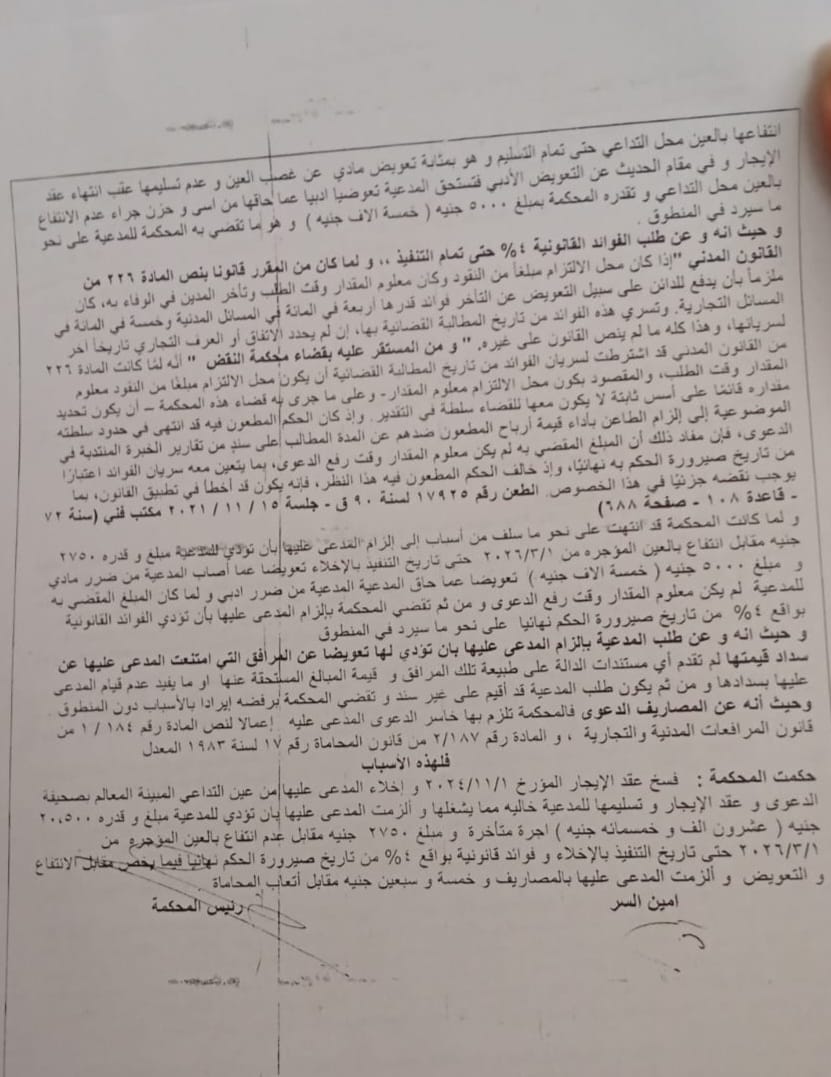 انتفاعها بالعين محل التداعي حتى تمام التسليم و هو بمثابة تعويض مادي عن غصب العين و عدم تسليمها عقب انتهاء عقد
الإيجار و في مقام الحديث عن التعويض الأدبي فتستحق المدعية تعوضيا ادبيا عما حاقها من اسى و حزن جراء عدم الانتفاع
بالعين محل التداعي و تقدره المحكمة بمبلغ ٥٠٠٠ جنيه ( خمسة الاف جنيه ) و هو ما تقضي به المحكمة للمدعية على نحو
ما سيرد في المنطوق .
و حيث انه و عن طلب الفوائد القانونية ٤% حتى تمام التنفيذ ,, و لما كان من المقرر قانونا بنص المادة ٢٢٦ من
القانون المدني "إذا كان محل الالتزام مبلغاً من النقود وكان معلوم المقدار وقت الطلب وتأخر المدين في الوفاء به، كان
ملزماً بأن يدفع للدائن على سبيل التعويض عن التأخر فوائد قدرها أربعة في المائة في المسائل المدنية وخمسة في المائة في
المسائل التجارية. وتسري هذه الفوائد من تاريخ المطالبة القضائية بها، إن لم يحدد الاتفاق أو العرف التجاري تاريخاً آخر
لسريانها، وهذا كله ما لم ينص القانون على غيره. " و من المستقر عليه بقضاء محكمة النقض " أنه لمّا كانت المادة ٢٢٦
من القانون المدني قد اشترطت لسريان الفوائد من تاريخ المطالبة القضائية أن يكون محل الالتزام مبلغًا من النقود معلوم
المقدار وقت الطلب، والمقصود بكون محل الالتزام معلوم المقدار- وعلى ما جرى به قضاء هذه المحكمة – أن يكون تحديد
مقداره قائمًا على أسس ثابتة لا يكون معها للقضاء سلطة في التقدير. وإذ كان الحكم المطعون فيه قد انتهى في حدود سلطته
الموضوعية إلى إلزام الطاعن بأداء قيمة أرباح المطعون ضدهم عن المدة المطالب على سندٍ من تقارير الخبرة المنتدبة في
الدعوى، فإن مفاد ذلك أن المبلغ المقضي به لم يكن معلوم المقدار وقت رفع الدعوى، بما يتعين معه سريان الفوائد اعتبارًا
من تاريخ صيرورة الحكم به نهائيًا، وإذ خالف الحكم المطعون فيه هذا النظر، فإنه يكون قد أخطأ في تطبيق القانون، بما
يوجب نقضه جزئيًا في هذا الخصوص. الطعن رقم ١٧٩٢٥ لسنة ٩٠ ق - جلسة ١٥ / ١١ / ٢٠٢١ مكتب فني (سنة ٧٢
- قاعدة ١٠٨ - صفحة ٦٨٨)
و لما كانت المحكمة قد انتهت على نحو ما سلف من أسباب إلى إلزام المدعى عليها بأن تؤدي للمدعية مبلغ و قدره ٢٧٥٠
جنيه مقابل انتفاع بالعين المؤجره من ٢٠٢٦/٣/١ حتى تاريخ التنفيذ بالإخلاء تعويضا عما أصاب المدعية من ضرر مادي
و مبلغ ٥٠٠٠ جنيه ( خمسة الاف جنيه ) تعويضا عما حاق المدعية المدعية من ضرر ادبي و لما كان المبلغ المقضي به
للمدعية لم يكن معلوم المقدار وقت رفع الدعوى و من ثم تقضي المحكمة بإلزام المدعى عليها بأن تؤدي الفوائد القانونية
بواقع ٤% من تاريخ صيرورة الحكم نهائيا على نحو ما سيرد في المنطوق
و حيث انه و عن طلب المدعية بإلزام المدعى عليها بان تؤدي لها تعويضا عن المرافق التي امتنعت المدعى عليها عن
سداد قيمتها لم تقدم أي مستندات الدالة على طبيعة تلك المرافق و قيمة المبالغ المستحقة عنها او ما يفيد عدم قيام المدعى
عليها بسدادها و من ثم يكون طلب المدعية قد أقيم على غير سند و تقضي المحكمة برفضه إيرادا بالأسباب دون المنطوق .
وحيث أنه عن المصاريف الدعوى فالمحكمة تلزم بها خاسر الدعوى المدعى عليه إعمالا لنص المادة رقم ١٨٤ / ١ من
قانون المرافعات المدنية والتجارية ، و المادة رقم ٢/١٨٧ من قانون المحاماة رقم ١٧ لسنة ١٩٨٣ المعدل
فلهذه الأسباب
حكمت المحكمة : فسخ عقد الإيجار المؤرخ ٢٠٢٤/١١/١ و إخلاء المدعى عليها من عين التداعي المبينة المعالم بصحيفة
الدعوى و عقد الإيجار و تسليمها للمدعية خاليه مما يشغلها و ألزمت المدعى عليها بأن تؤدي للمدعية مبلغ و قدره ٢٠,٥٠٠
جنيه ( عشرون الف و خمسمائه جنيه ) اجرة متأخرة و مبلغ ٢٧٥٠ جنيه مقابل عدم انتفاع بالعين المؤجره من
٢٠٢٦/٣/١ حتى تاريخ التنفيذ بالإخلاء و فوائد قانونية بواقع ٤% من تاريخ صيرورة الحكم نهائيا فيما يخص مقابل الانتفاع
و التعويض و ألزمت المدعى عليها بالمصاريف و خمسة و سبعين جنيه مقابل أتعاب المحاماة
امين السر رئيس المحكمة